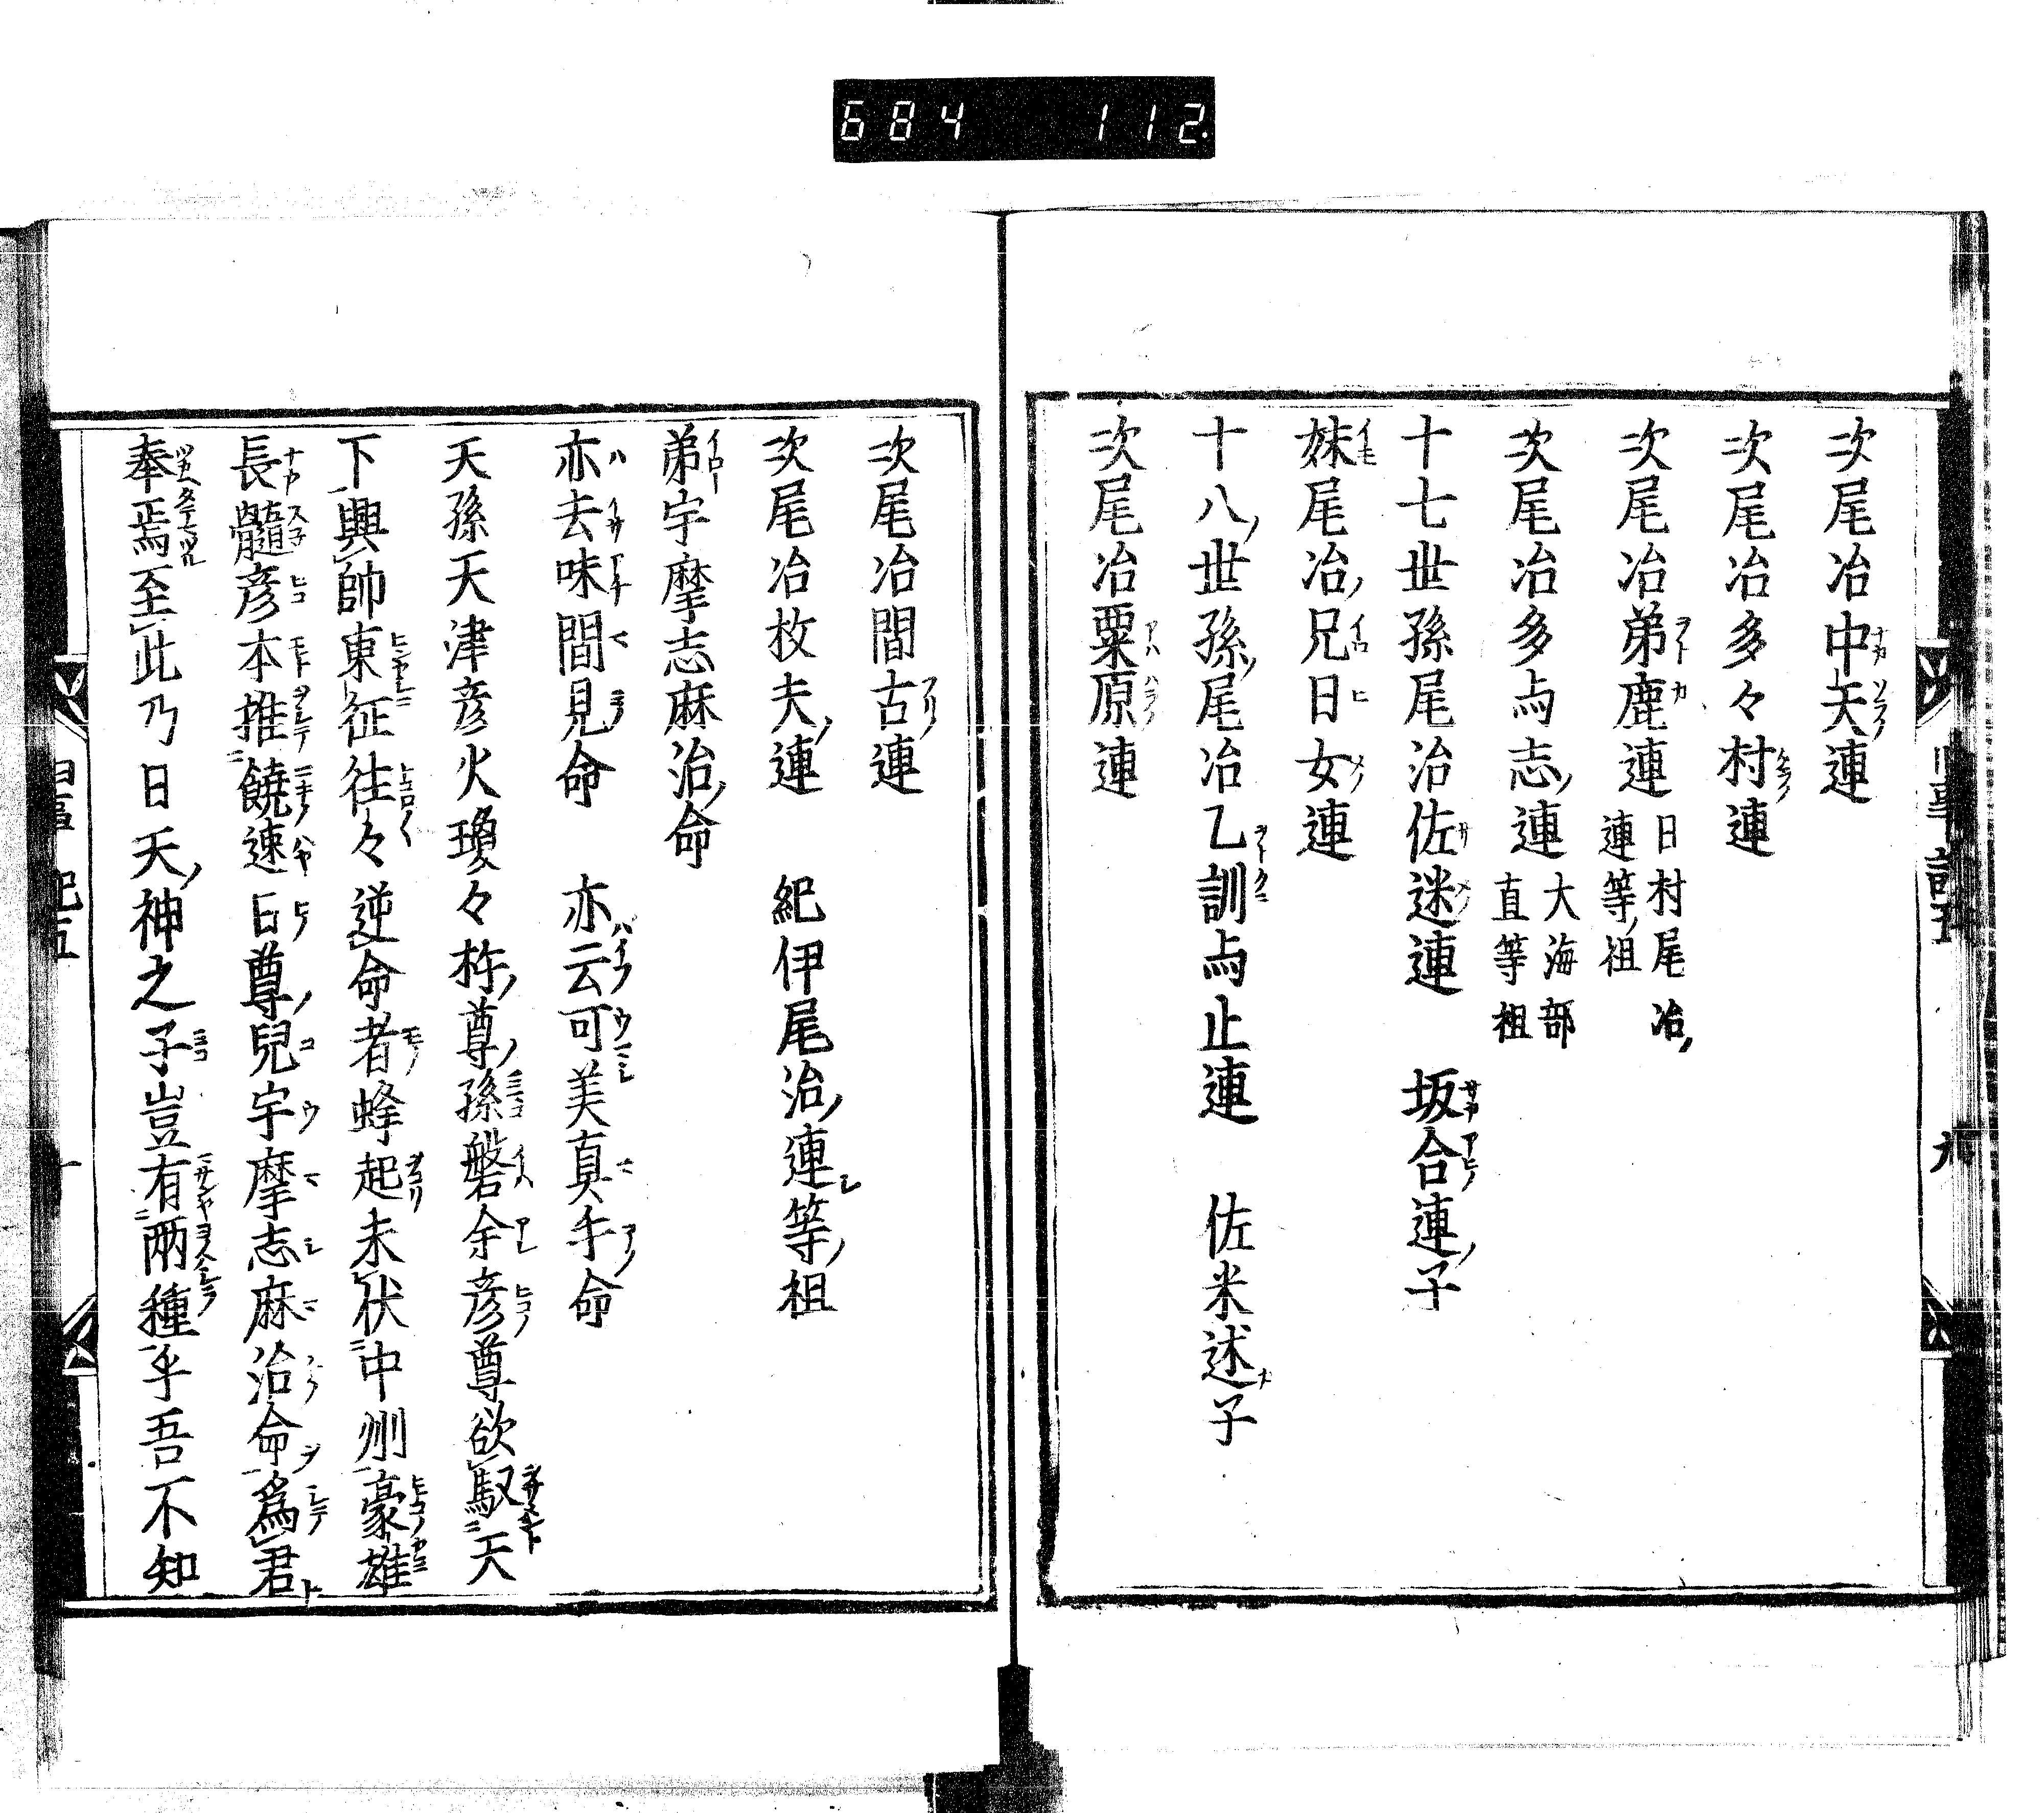 684 112.
次尾冶中天連
次尾冶多々村連
次尾冶弟鹿連 日村尾冶連等祖
次尾冶多与志連 大海部直等祖
十七世孫尾治佐迷連 坂合連子
妹尾冶兄日女連
十八世孫尾冶乙訓与止連 佐米述子
次尾冶粟原連
次尾冶間古連
次尾冶枚夫連 紀伊尾治連等祖
弟宇摩志麻治命
亦去味間見命 亦云可美真手命
天孫天津彦火瓊々杵尊孫磐余彦尊欲馭天
下興帥東征往々逆命者蜂起未伏中州豪雄
長髓彦本推饒速日尊兒宇摩志麻治命為君
奉焉至此乃曰天神之子豈有兩種乎吾不知